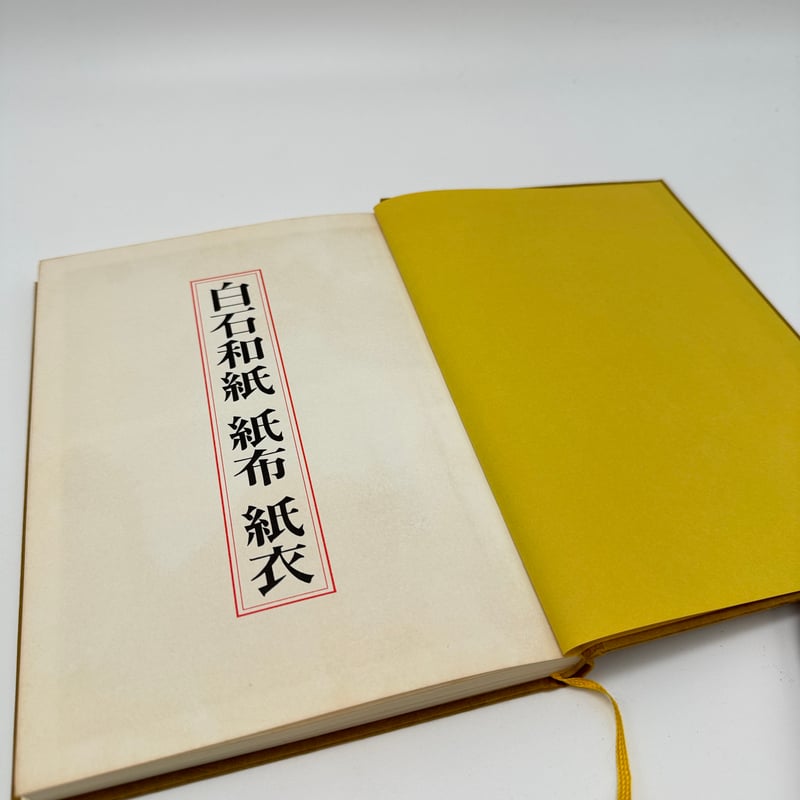 白石和紙 紙布 紙衣